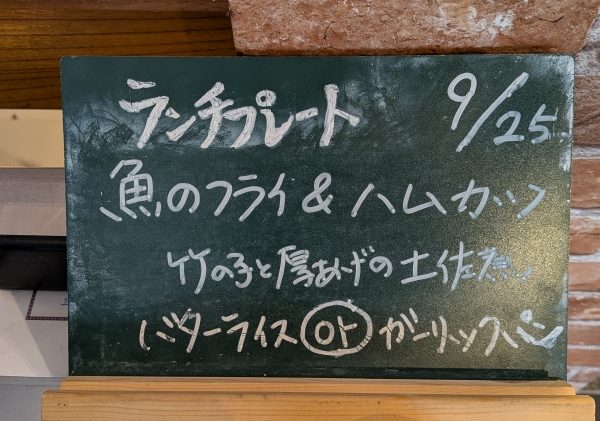 ランチプレート 9/25
魚のフライ & ハムカツ
竹の子と厚あげの土佐煮
バターライス or ガーリックパン